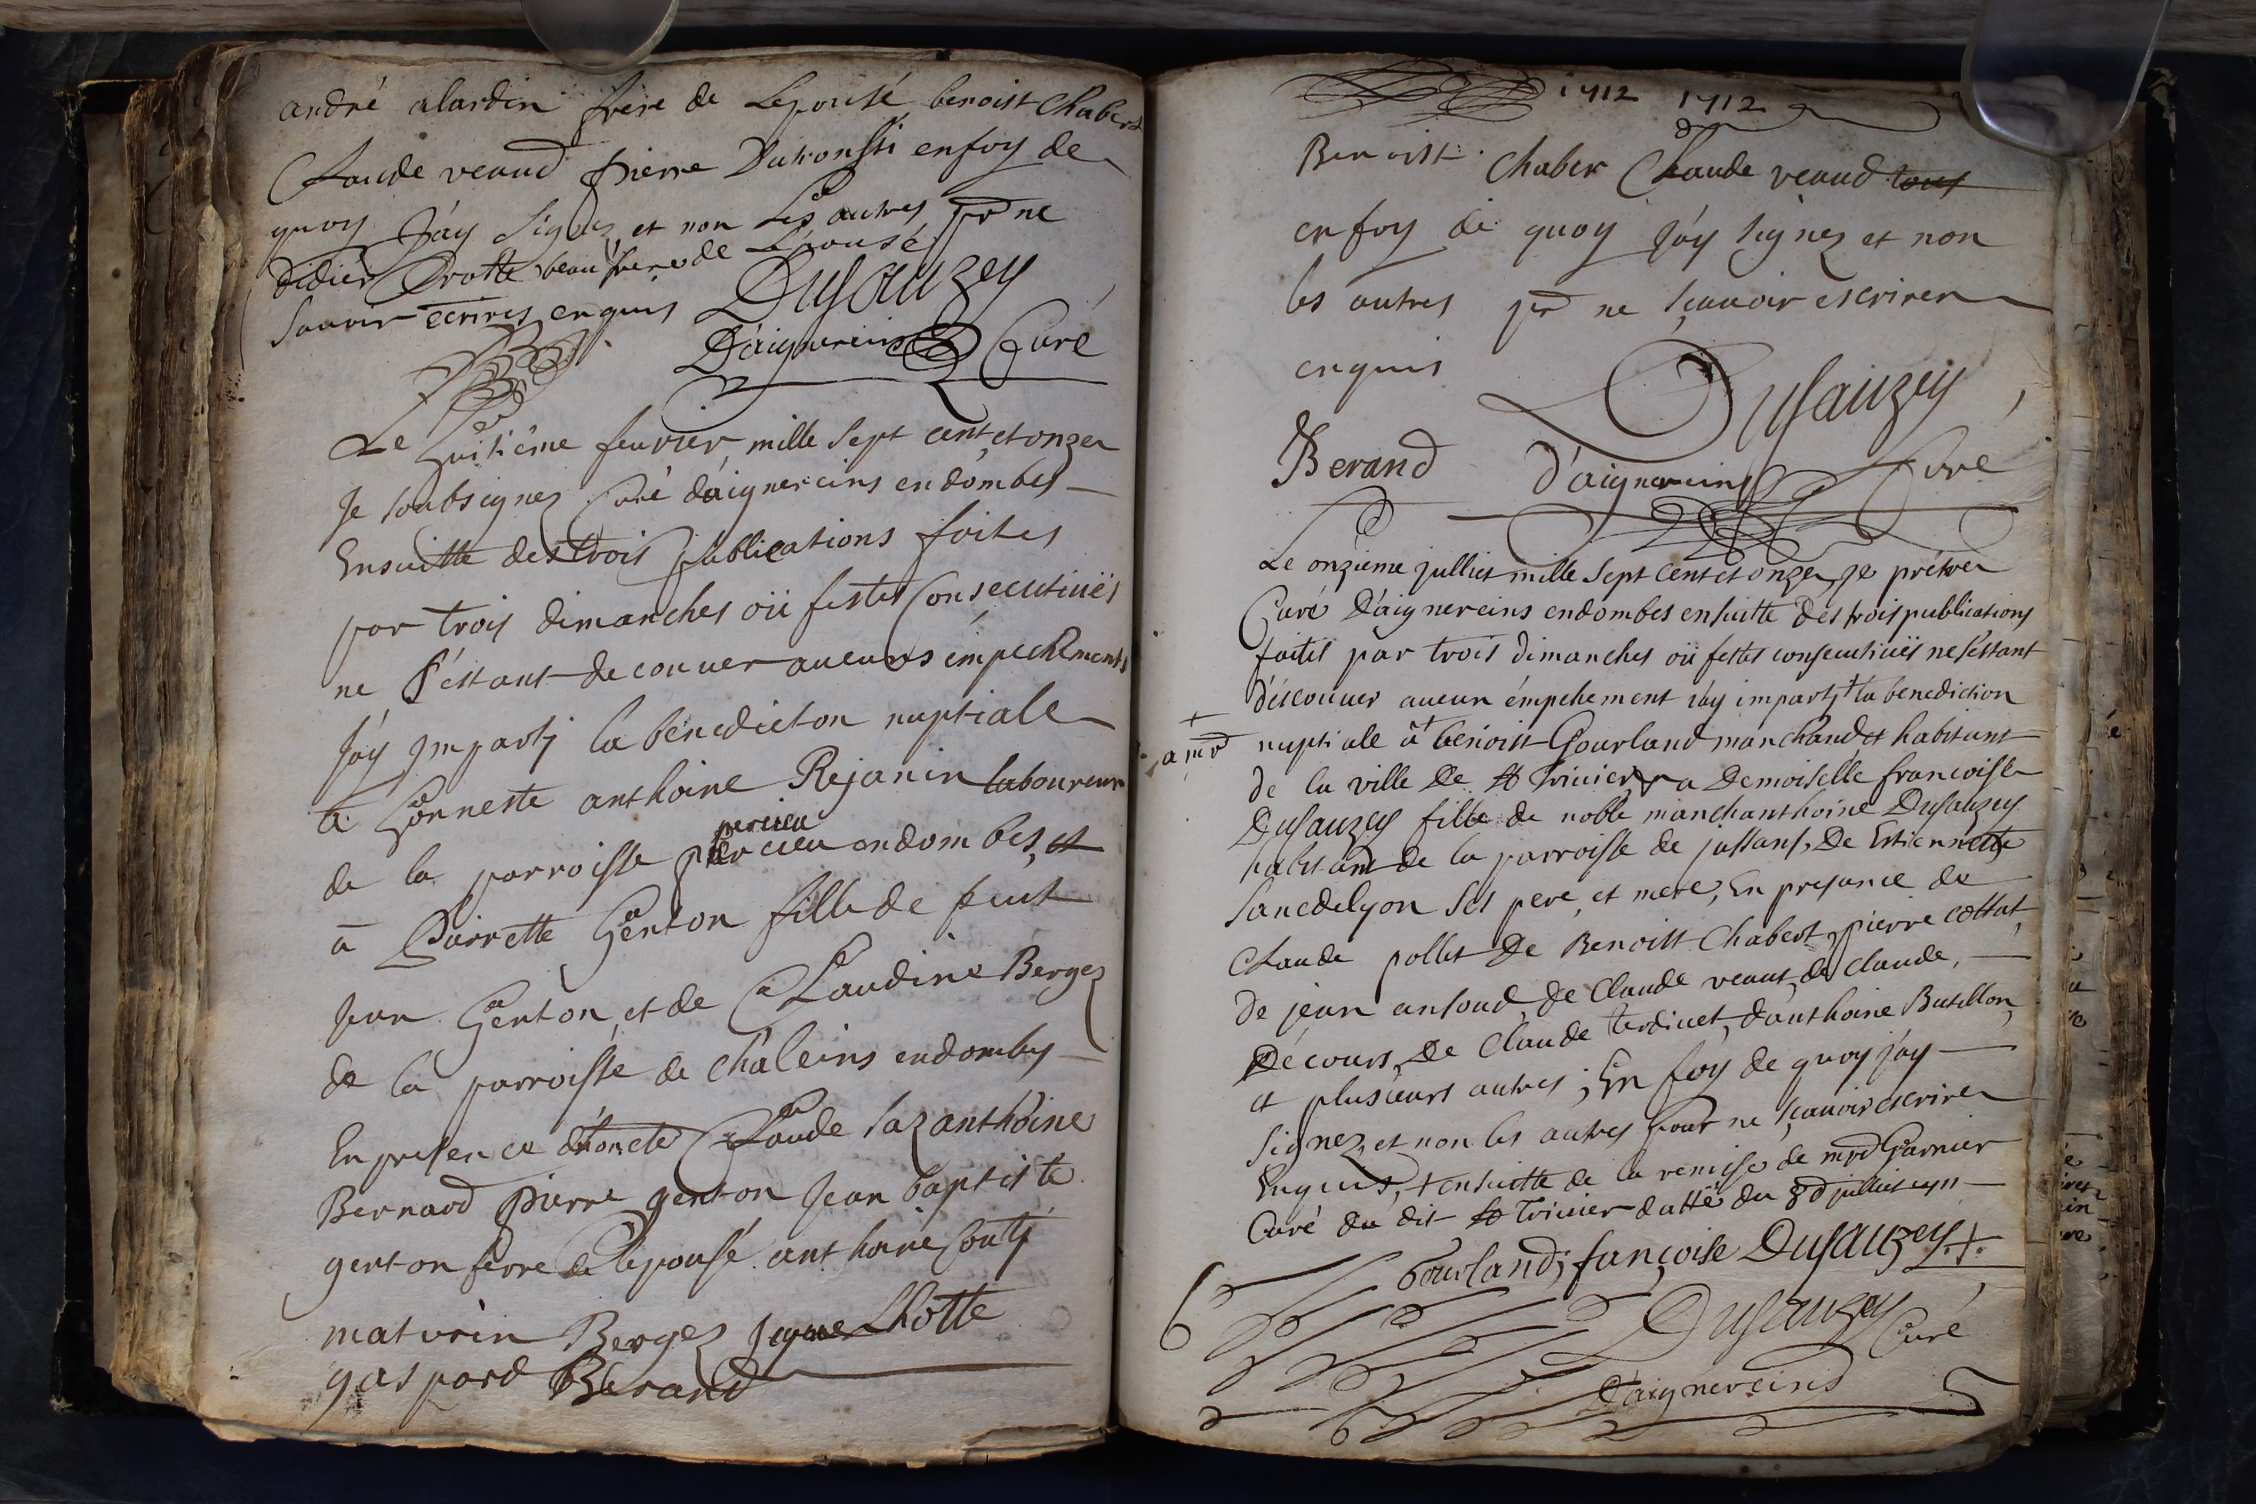 andré alardin frere de Lepousé benoist Chabert
Claude veaud pierre en foy de
quoy J'ay Signez et non Les autres pr ne
didier Drotte beau frere de L'épousé
Sauoir ecrires enquis Dusauzey
D'aignereins Curé
Le huitième feurier mille Sept cent et onze
Je soubsignez Curé d'aignereins en dombes
Ensuitte des trois publications faites
par trois dimanches oü festes Consecutiués
ne S'éstant decouuer aucuns émpechements
J'ay Jmparti la bénediction nuptiale
a honneste anthoine Rejanin laboureur
percieu
de la parroisse en dombes, et
a Pierrette Genton fille de feut
Jean Genton, et de Claudine Bergez
de la parroisse de chaleins en dombes
En presence Claude laz anthoine
Bernard pierre genton Jean baptiste
genton frere de L'epousé anthoine
maturin Bergez Lhotte
gaspard Berand
1712 1712
Benoist Chaber Claude veaud tous
en foy de quoy J'ay signez et non
les autres pr ne sçauoir escrire
enquis Dusauzey
Berand d'aignereins Curé
Le onzieme julliet mille Sept cent et onze, je prétre
Curé D'aignereins en dombes ensuitte des trois publications
faites par trois dimanches oü festes consecutiués ne s'estant
déscouuer aucun émpechement j'ay imparty la benediction
+
a mrd nuptiale a + benoist Gourland marchand et habitant
de la ville de St Triuier, a Demoiselle francoise
Dusauzey fille de noble marchanthoine Dusauzey
habitant de la parroisse de jassans, De Estiennette
Sanedelyon Ses pere, et mere, En presance de
Claude pollet De Benoist Chabert, pierre cottat,
De jean ansoud, de Claude veaut, de Claude,
Décours, De Claude tardiuet, d'anthoine Butillon,
et plusieurs autres; En foy de quoy j'ay
Signez, et non les autres pour ne sçauoir escrire
Enquis, + ensuitte de la remise de mrd Garnier
Curé du dit St Triuier datté du 8d julliet 1711
Gourland; françoise Dusauzey +
Dusauzey Curé
D'aignereins